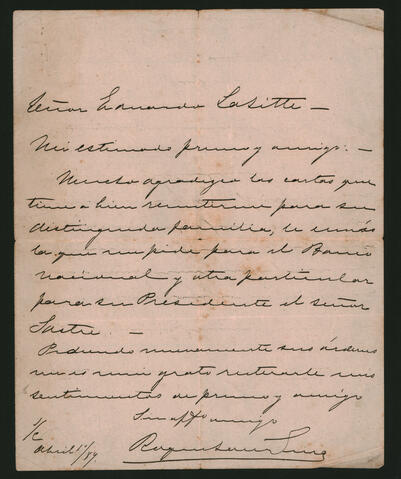 Señor Eduardo Lasitte —
Mi estimado primo y amigo: —
Mucho agradezco las cartas que
tiene á bien remitirme para su
distinguida familia,
la que me pide para el Banco
nacional y otra particular
para su Presidente el señor
Sastre. —
Pidiendo nuevamente sus órdenes
me es muy grato reiterarle mis
sentimientos de primo y amigo
Su aff amigo
S/C
Abril 1º/89
Roque